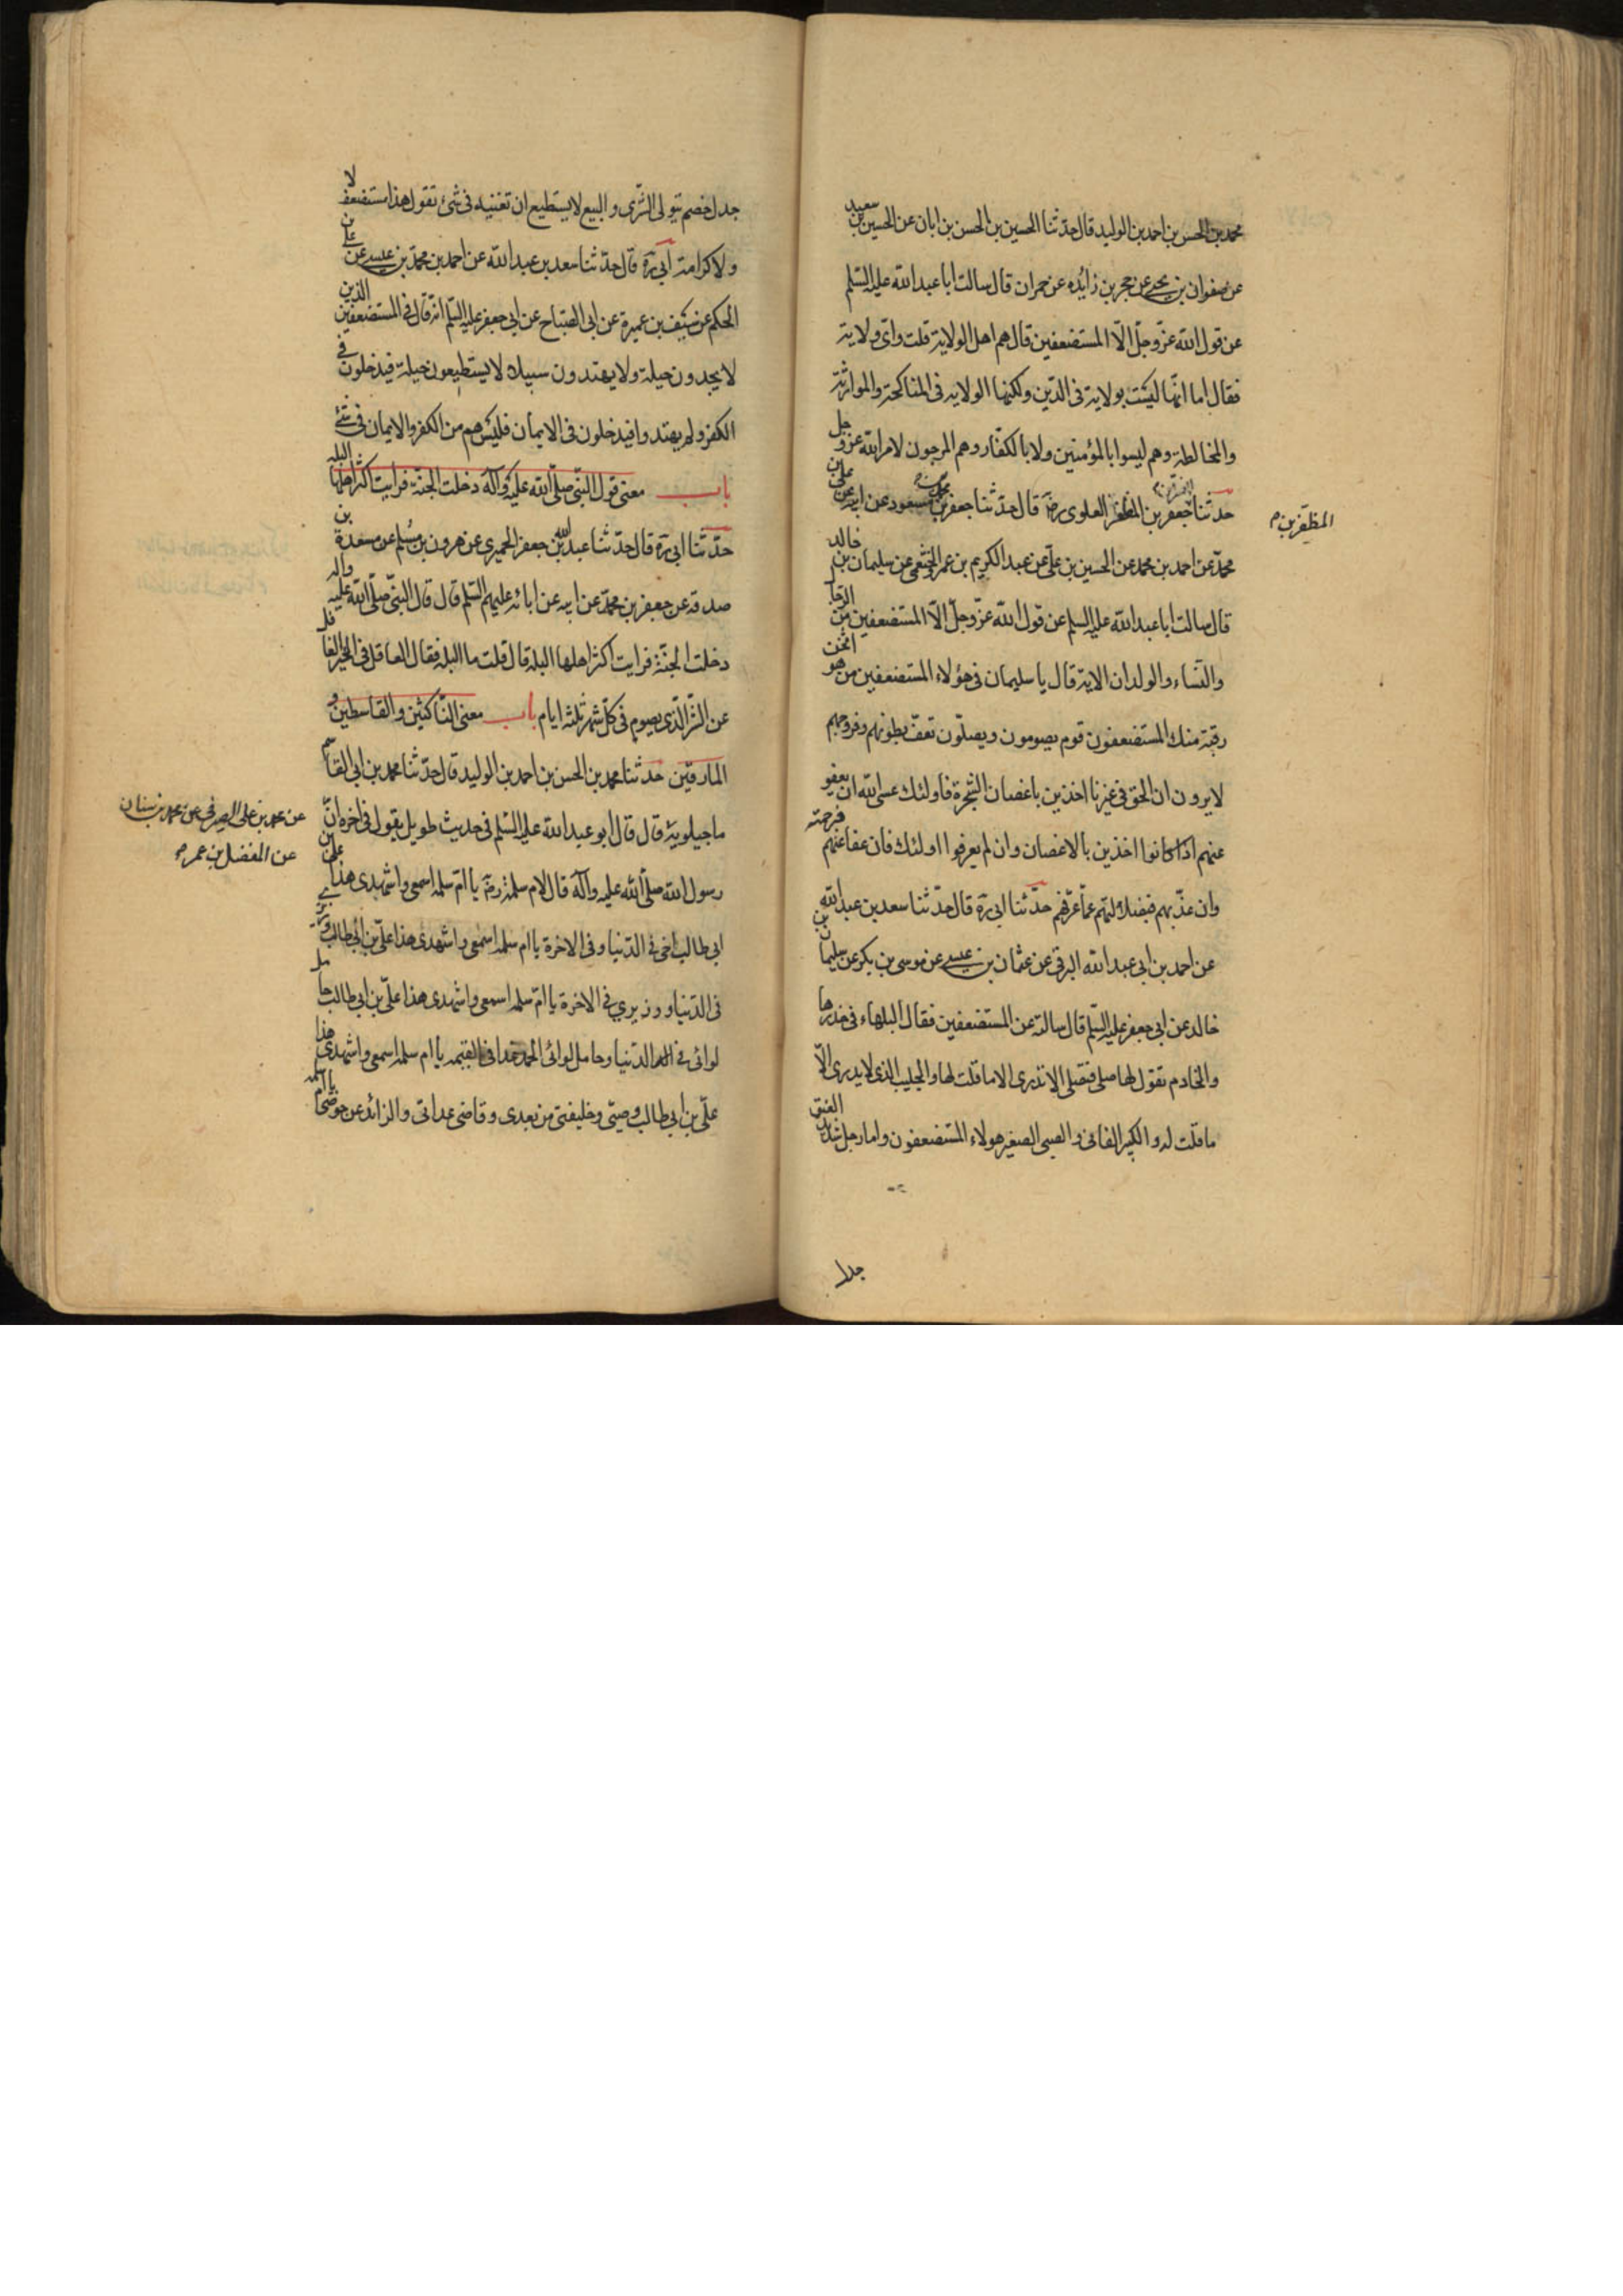 محمد بن الحسن بن احمد بن الوليد قال حدثنا الحسين بن الحسن بن ابان عن الحسين بن سعيد
عن صفوان بن يحيى عن حجر بن زائده عن حمران قال سالت ابا عبد الله عليه السلم
عن قول الله عزّ وجلّ الّا المستضعفين قال هم اهل الولاية قلت واىّ ولاية
فقال اما انّها ليست بولاية فى الدّين ولكنها الولايه فى المناكحة والموارثة
والمخالطة وهم ليسوا بالمؤمنين ولا بالكفّار وهم المرجون لامر الله عزّ وجل
حدثنا جعفر بن المظفر العلوى رضه قال حدثنا جعفر بن محمد بن مسعود عن ابيه عن على بن
المظفر بن م
محمّد عن احمد بن محمد عن الحسين بن علّى عن عبد الكريم بن عمر الخثعمى عن سليمان بن خالد
قال سالت ابا عبد الله عليه السلم عن قول الله عزّ وجلّ الّا المستضعفين من الرّجا
والنّساء والولدان الاية قال يا سليمان فى هؤلاء المستضعفين من هو اثخن
رقبة منك المستضعفون قوم يصومون ويصلّون تعفّ بطونهم وفروجهم
لا يرون ان الحق فى غيرنا اخذين باغصان الشجرة فاولئك عسى الله ان يعفو
عنهم اذا كانوا اخذين بالاغصان وان لم يعرفوا اولئك فان عفا عنهم فبرحمته
وان عذّبهم فبضلالتهم عمّا عرّفهم حدّثنا ابى ره قال حدّثنا سعد بن عبد الله
عن احمد بن ابى عبد الله البرقى عن عثمان بن عيسى عن موسى بن بكر عن سليمان بن
خالد عن ابى جعفر عليه السلم قال سالته عن المستضعفين فقال البلهاء فى خدرها
والخادم تقول لها صلى فتصلى لا تدرى الا ما قلت لها والجليب الذى لا يدرى الّا
ما قلت له والكبير الفانى والصبى الصغير هولاء المستضعفون واما رجل شديد العنق
جدل
جدل خصم يتولى الشّرى والبيع لا يستطيع ان تغبنيه فى شىء تقول هذا مستضعف لا
ولا كرامة ابى ره قال حدّثنا سعد بن عبد الله عن احمد بن محمّد بن عيسى عن على بن
الحكم عن سيف بن عميرة عن ابى الصبّاح عن ابى جعفر عليه السّلم انّه قال فى المستضعفين الذين
لا يجدون حيلة ولا يهتدون سبيلا لا يستطيعون حيلة فيدخلون فى
الكفر ولم يهتدوا فيدخلون فى الايمان فليس هم من الكفر والايمان فى شئ
باب معنى قول النبّى صلّى الله عليه وآله دخلت الجنّة فرايت اكثر اهلها البله
حدّثنا ابى ره قال حدّثنا عبد الله بن جعفر الحميرى عن هرون بن مسلم عن مسعدة بن
صدقه عن جعفر بن محمّد عن ابيه عن ابائه عليهم السّلم قال قال النبّى صلّى الله عليه واله
دخلت الجنّة فرايت اكثر اهلها البله قال قلت ما البله فقال العاقل فى الخير الغافل
عن الشّر الّذى يصوم فى كلّ شهر ثلثه ايام باب معنى النّاكثين والقاسطين و
المارقين حدثنا محمد بن الحسن بن احمد بن الوليد قال حدّثنا محمد بن ابى القاسم
ماجيلويه قال قال ابو عبد الله عليه السّلم فى حديث طويل يقول فى اخره انّ
عن محمد بن على الصيرفى عن محمد بن سنان
عن المفضل بن عمر م
رسول الله صلّى الله عليه وآله قال لام سلمة رضه يا امّ سلمه اسمعى واشهدى هذا على بن
ابى طالب اخى فى الدّنيا وفى الاخرة يا ام سلمه اسمعى واشهدى هذا علىّ بن ابى طالب وزيرى
فى الدّنيا ووزيرى فى الاخرة يا امّ سلمه اسمعى واشهدى هذا علىّ بن ابى طالب حامل
لوائى فى الدنيا وحامل لوائى الحمد غدا فى القيمه يا ام سلمه اسمعى واشهدى هذا
علّى بن ابى طالب وصيّى وخليفتى من بعدى وقاضى عداتى والزائد عن حوضى يا ام سلمه